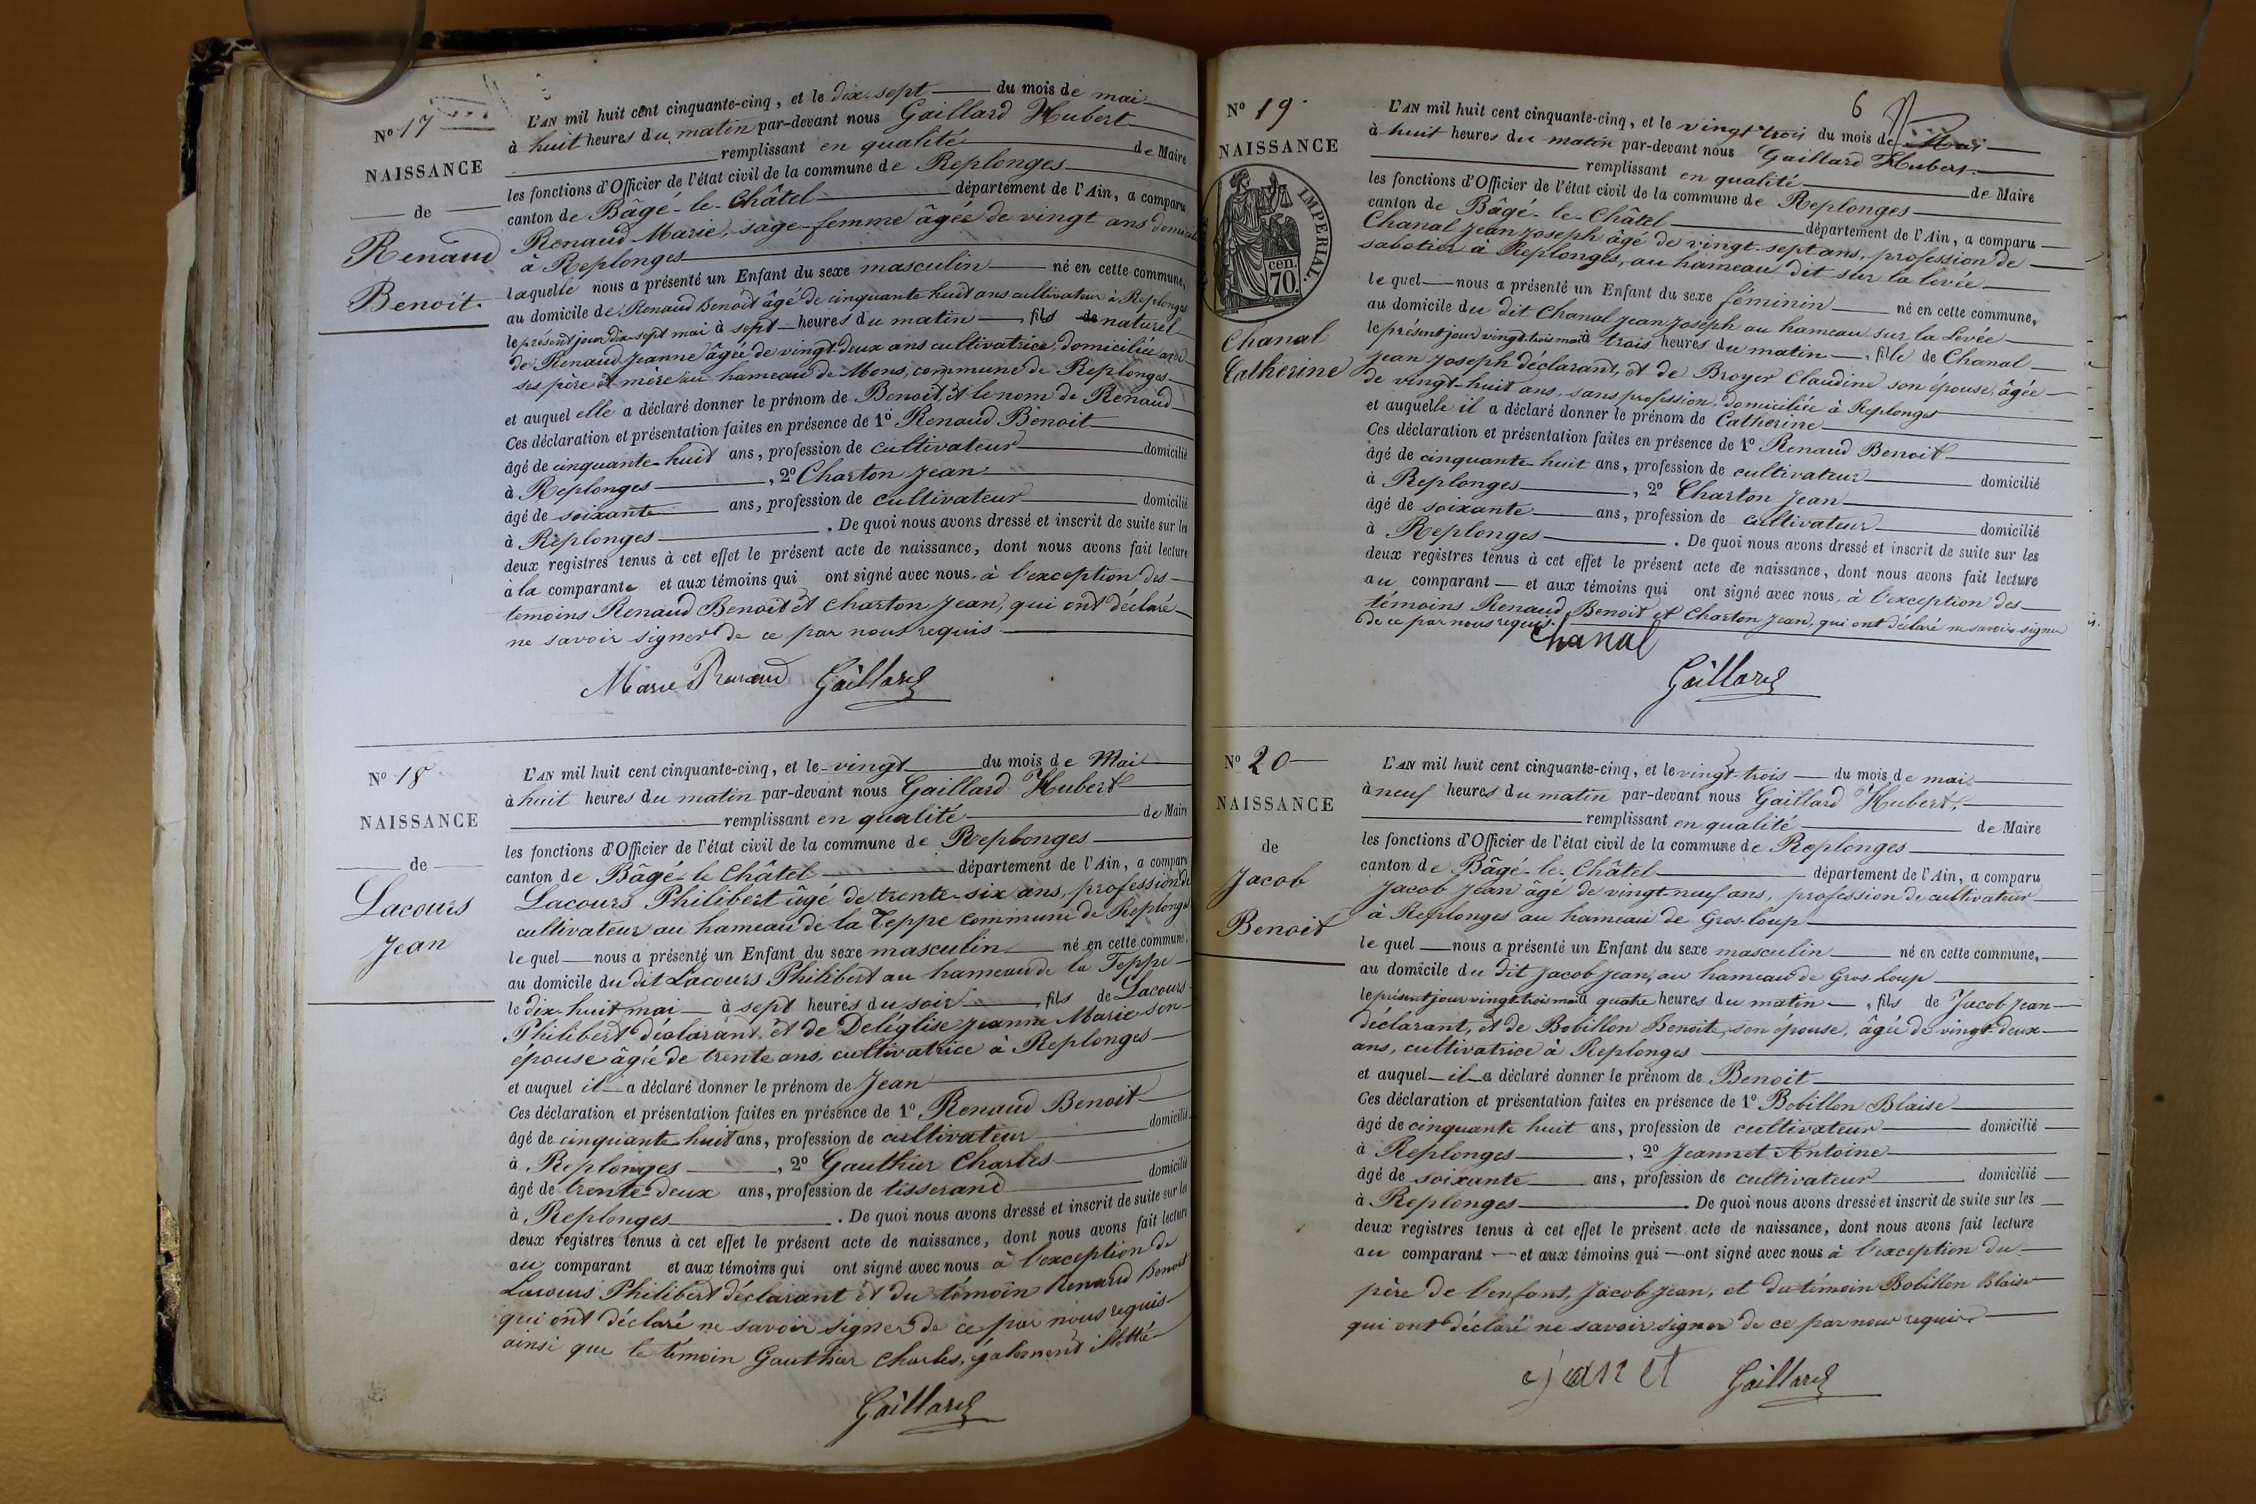 N° 17
NAISSANCE
de
Renaud
Benoit.
L'AN mil huit cent cinquante-cinq, et le dix-sept du mois de mai
à huit heures du matin par-devant nous Gaillard Hubert
remplissant en qualité de Maire
les fonctions d'Officier de l'état civil de la commune de Replonges
canton de Bâgé-le-Châtel département de l'Ain, a comparu
Renaud Marie, sage-femme âgée de vingt ans domiciliée
à Replonges
laquelle nous a présenté un Enfant du sexe masculin né en cette commune,
au domicile de Renaud Benoit âgé de cinquante huit ans cultivateur à Replonges
le présent jour dix-sept mai à sept heures du matin, fils de naturel
de Renaud Jeanne âgée de vingt-deux ans cultivatrice, domiciliée avec
ses père et mère au hameau de Mons, commune de Replonges
et auquel elle a déclaré donner le prénom de Benoit, et le nom de Renaud
Ces déclaration et présentation faites en présence de 1° Renaud Benoit
âgé de cinquante-huit ans, profession de cultivateur domicilié
à Replonges, 2° Charton Jean
âgé de soixante ans, profession de cultivateur domicilié
à Replonges. De quoi nous avons dressé et inscrit de suite sur les
deux registres tenus à cet effet le présent acte de naissance, dont nous avons fait lecture
à la comparante et aux témoins qui ont signé avec nous, à l'exception des
temoins Renaud Benoit et Charton Jean, qui ont déclaré
ne savoir signer de ce par nous requis
Marie Renaud Gaillard
N° 18
NAISSANCE
de
Lacours
Jean
L'AN mil huit cent cinquante-cinq, et le vingt du mois de Mai
à huit heures du matin par-devant nous Gaillard Hubert
remplissant en qualité de Maire
les fonctions d'Officier de l'état civil de la commune de Replonges
canton de Bâgé-le Châtel département de l'Ain, a comparu
Lacours Philibert âgé de trente-six ans, profession de
cultivateur au hameau de la Teppe commune de Replonges
le quel nous a présenté un Enfant du sexe masculin né en cette commune,
au domicile du dit Lacours Philibert au hameau de la Teppe
le dix-huit mai à sept heures du soir, fils de Lacours
Philibert déclarant, et de Deléglise Jeanne Marie son
épouse âgée de trente ans, cultivatrice à Replonges
et auquel il a déclaré donner le prénom de Jean
Ces déclaration et présentation faites en présence de 1° Renaud Benoit
âgé de cinquante huit ans, profession de cultivateur domicilié
à Replonges, 2° Gauthier Charles
âgé de trente-deux ans, profession de tisserand domicilié
à Replonges. De quoi nous avons dressé et inscrit de suite sur les
deux registres tenus à cet effet le présent acte de naissance, dont nous avons fait lecture
au comparant et aux témoins qui ont signé avec nous à l'exception de
Lacours Philibert déclarant et du témoin Renaud Benoit
qui ont déclaré ne savoir signer de ce par nous requis
ainsi que le témoin Gauthier Charles, également illettré
Gaillard
6
N° 19
NAISSANCE
IMPERIAL.
cen.
70.
Chanal
Catherine
L'AN mil huit cent cinquante-cinq, et le vingt trois du mois de Mai
à huit heures du matin par-devant nous Gaillard Hubert
remplissant en qualité de Maire
les fonctions d'Officier de l'état civil de la commune de Replonges
canton de Bâgé-le-Châtel département de l'Ain, a comparu
Chanal Jean Joseph âgé de vingt-sept ans, profession de
sabotier à Replonges, au hameau dit sur la levée
le quel nous a présenté un Enfant du sexe féminin né en cette commune,
au domicile du dit Chanal Jean Joseph au hameau sur la Levée
le présent jour vingt-trois mai à trois heures du matin, fille de Chanal
Jean Joseph déclarant, et de Broyer Claudine son épouse, âgée
de vingt-huit ans, sans profession, domiciliée à Replonges
et auquelle il a déclaré donner le prénom de Catherine
Ces déclaration et présentation faites en présence de 1° Renaud Benoit
âgé de cinquante-huit ans, profession de cultivateur domicilié
à Replonges, 2° Charton Jean
âgé de soixante ans, profession de cultivateur domicilié
à Replonges. De quoi nous avons dressé et inscrit de suite sur les
deux registres tenus à cet effet le présent acte de naissance, dont nous avons fait lecture
au comparant et aux témoins qui ont signé avec nous, à l'exception des
témoins Renaud Benoit et Charton Jean, qui ont déclaré ne savoir signer
de ce par nous requis.
Chanal
Gaillard
N° 20
NAISSANCE
de
Jacob
Benoit
L'AN mil huit cent cinquante-cinq, et le vingt-trois du mois de mai
à neuf heures du matin par-devant nous Gaillard Hubert,
remplissant en qualité de Maire
les fonctions d'Officier de l'état civil de la commune de Replonges
canton de Bâgé-le-Châtel département de l'Ain, a comparu
Jacob Jean âgé de vingt neuf ans, profession de cultivateur
à Replonges au hameau de Gros-loup
le quel nous a présenté un Enfant du sexe masculin né en cette commune,
au domicile du dit Jacob Jean, au hameau de Gros Loup
le présent jour vingt-trois mai à quatre heures du matin, fils de Jacob Jean
déclarant, et de Bobillon Benoite, son épouse, âgée de vingt-deux
ans, cultivatrice à Replonges
et auquel il a déclaré donner le prénom de Benoit
Ces déclaration et présentation faites en présence de 1° Bobillon Blaise
âgé de cinquante huit ans, profession de cultivateur domicilié
à Replonges, 2° Jeannet Antoine
âgé de soixante ans, profession de cultivateur domicilié
à Replonges. De quoi nous avons dressé et inscrit de suite sur les
deux registres tenus à cet effet le présent acte de naissance, dont nous avons fait lecture
au comparant et aux témoins qui ont signé avec nous à l'exception du
père de l'enfant, Jacob Jean, et du témoin Bobillon Blaise
qui ont déclaré ne savoir signer de ce par nous requis
Janet Gaillard